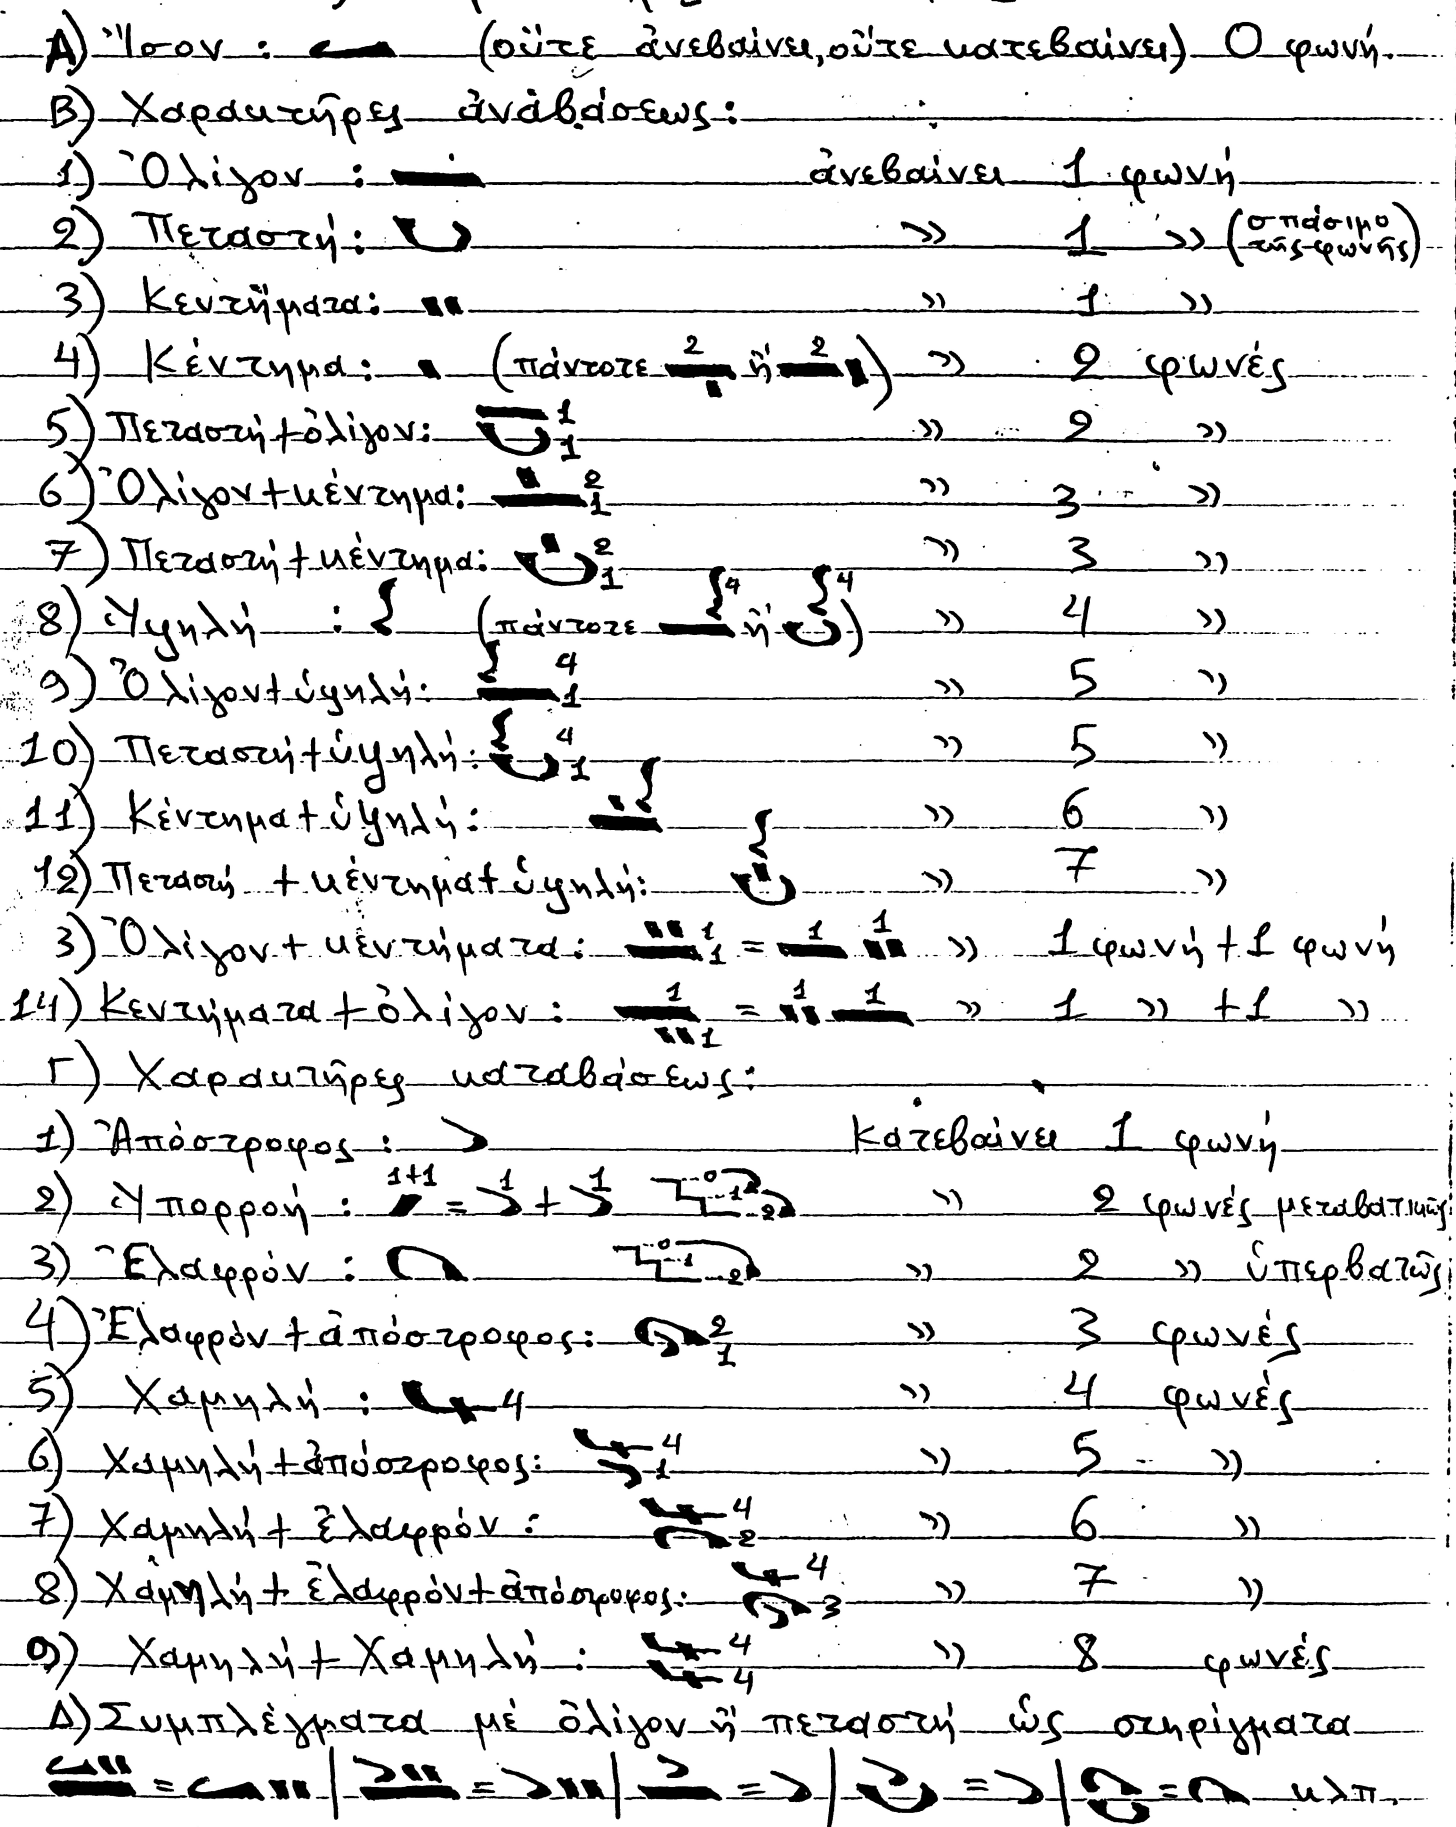 Α) Ἴσον : (οὔτε ἀνεβαίνει, οὔτε κατεβαίνει) 0 φωνή.
Β) Χαρακτῆρες ἀναβάσεως:
1) Ὀλίγον : ἀνεβαίνει 1 φωνή
2) Πεταστή: » 1 » (σπάσιμο τῆς φωνῆς)
3) Κεντήματα: » 1 »
4) Κέντημα: (πάντοτε 2 ἤ 2) » 2 φωνές
5) Πεταστή + ὀλίγον: 1 1 » 2 »
6) Ὀλίγον + κέντημα: 2 1 » 3 »
7) Πεταστή + κέντημα: 2 1 » 3 »
8) Ὑψηλή : (πάντοτε 4 ἤ 4) » 4 »
9) Ὀλίγον + ὑψηλή: 4 1 » 5 »
10) Πεταστή + ὑψηλή: 4 1 » 5 »
11) Κέντημα + ὑψηλή: » 6 »
12) Πεταστή + κέντημα + ὑψηλή: » 7 »
3) Ὀλίγον + κεντήματα: 1 1 = 1 1 » 1 φωνή + 1 φωνή
14) Κεντήματα + ὀλίγον: 1 1 = 1 1 » 1 » + 1 »
Γ) Χαρακτῆρες καταβάσεως:
1) Ἀπόστροφος : κατεβαίνει 1 φωνή
2) Ὑπορροή : 1+1 = 1 + 1 0 1 2 » 2 φωνές μεταβατικῶς
3) Ἐλαφρόν : 0 1 2 » 2 » ὑπερβατῶς
4) Ἐλαφρόν + ἀπόστροφος: 2 1 » 3 φωνές
5) Χαμηλή : 4 » 4 φωνές
6) Χαμηλή + ἀπόστροφος: 4 1 » 5 »
7) Χαμηλή + ἐλαφρόν : 4 2 » 6 »
8) Χαμηλή + ἐλαφρόν + ἀπόστροφος: 4 3 » 7 »
9) Χαμηλή + Χαμηλή : 4 4 » 8 φωνές
Δ) Συμπλέγματα μέ ὀλίγον ἤ πεταστή ὡς στηρίγματα
= | = | = | = | = κλπ.